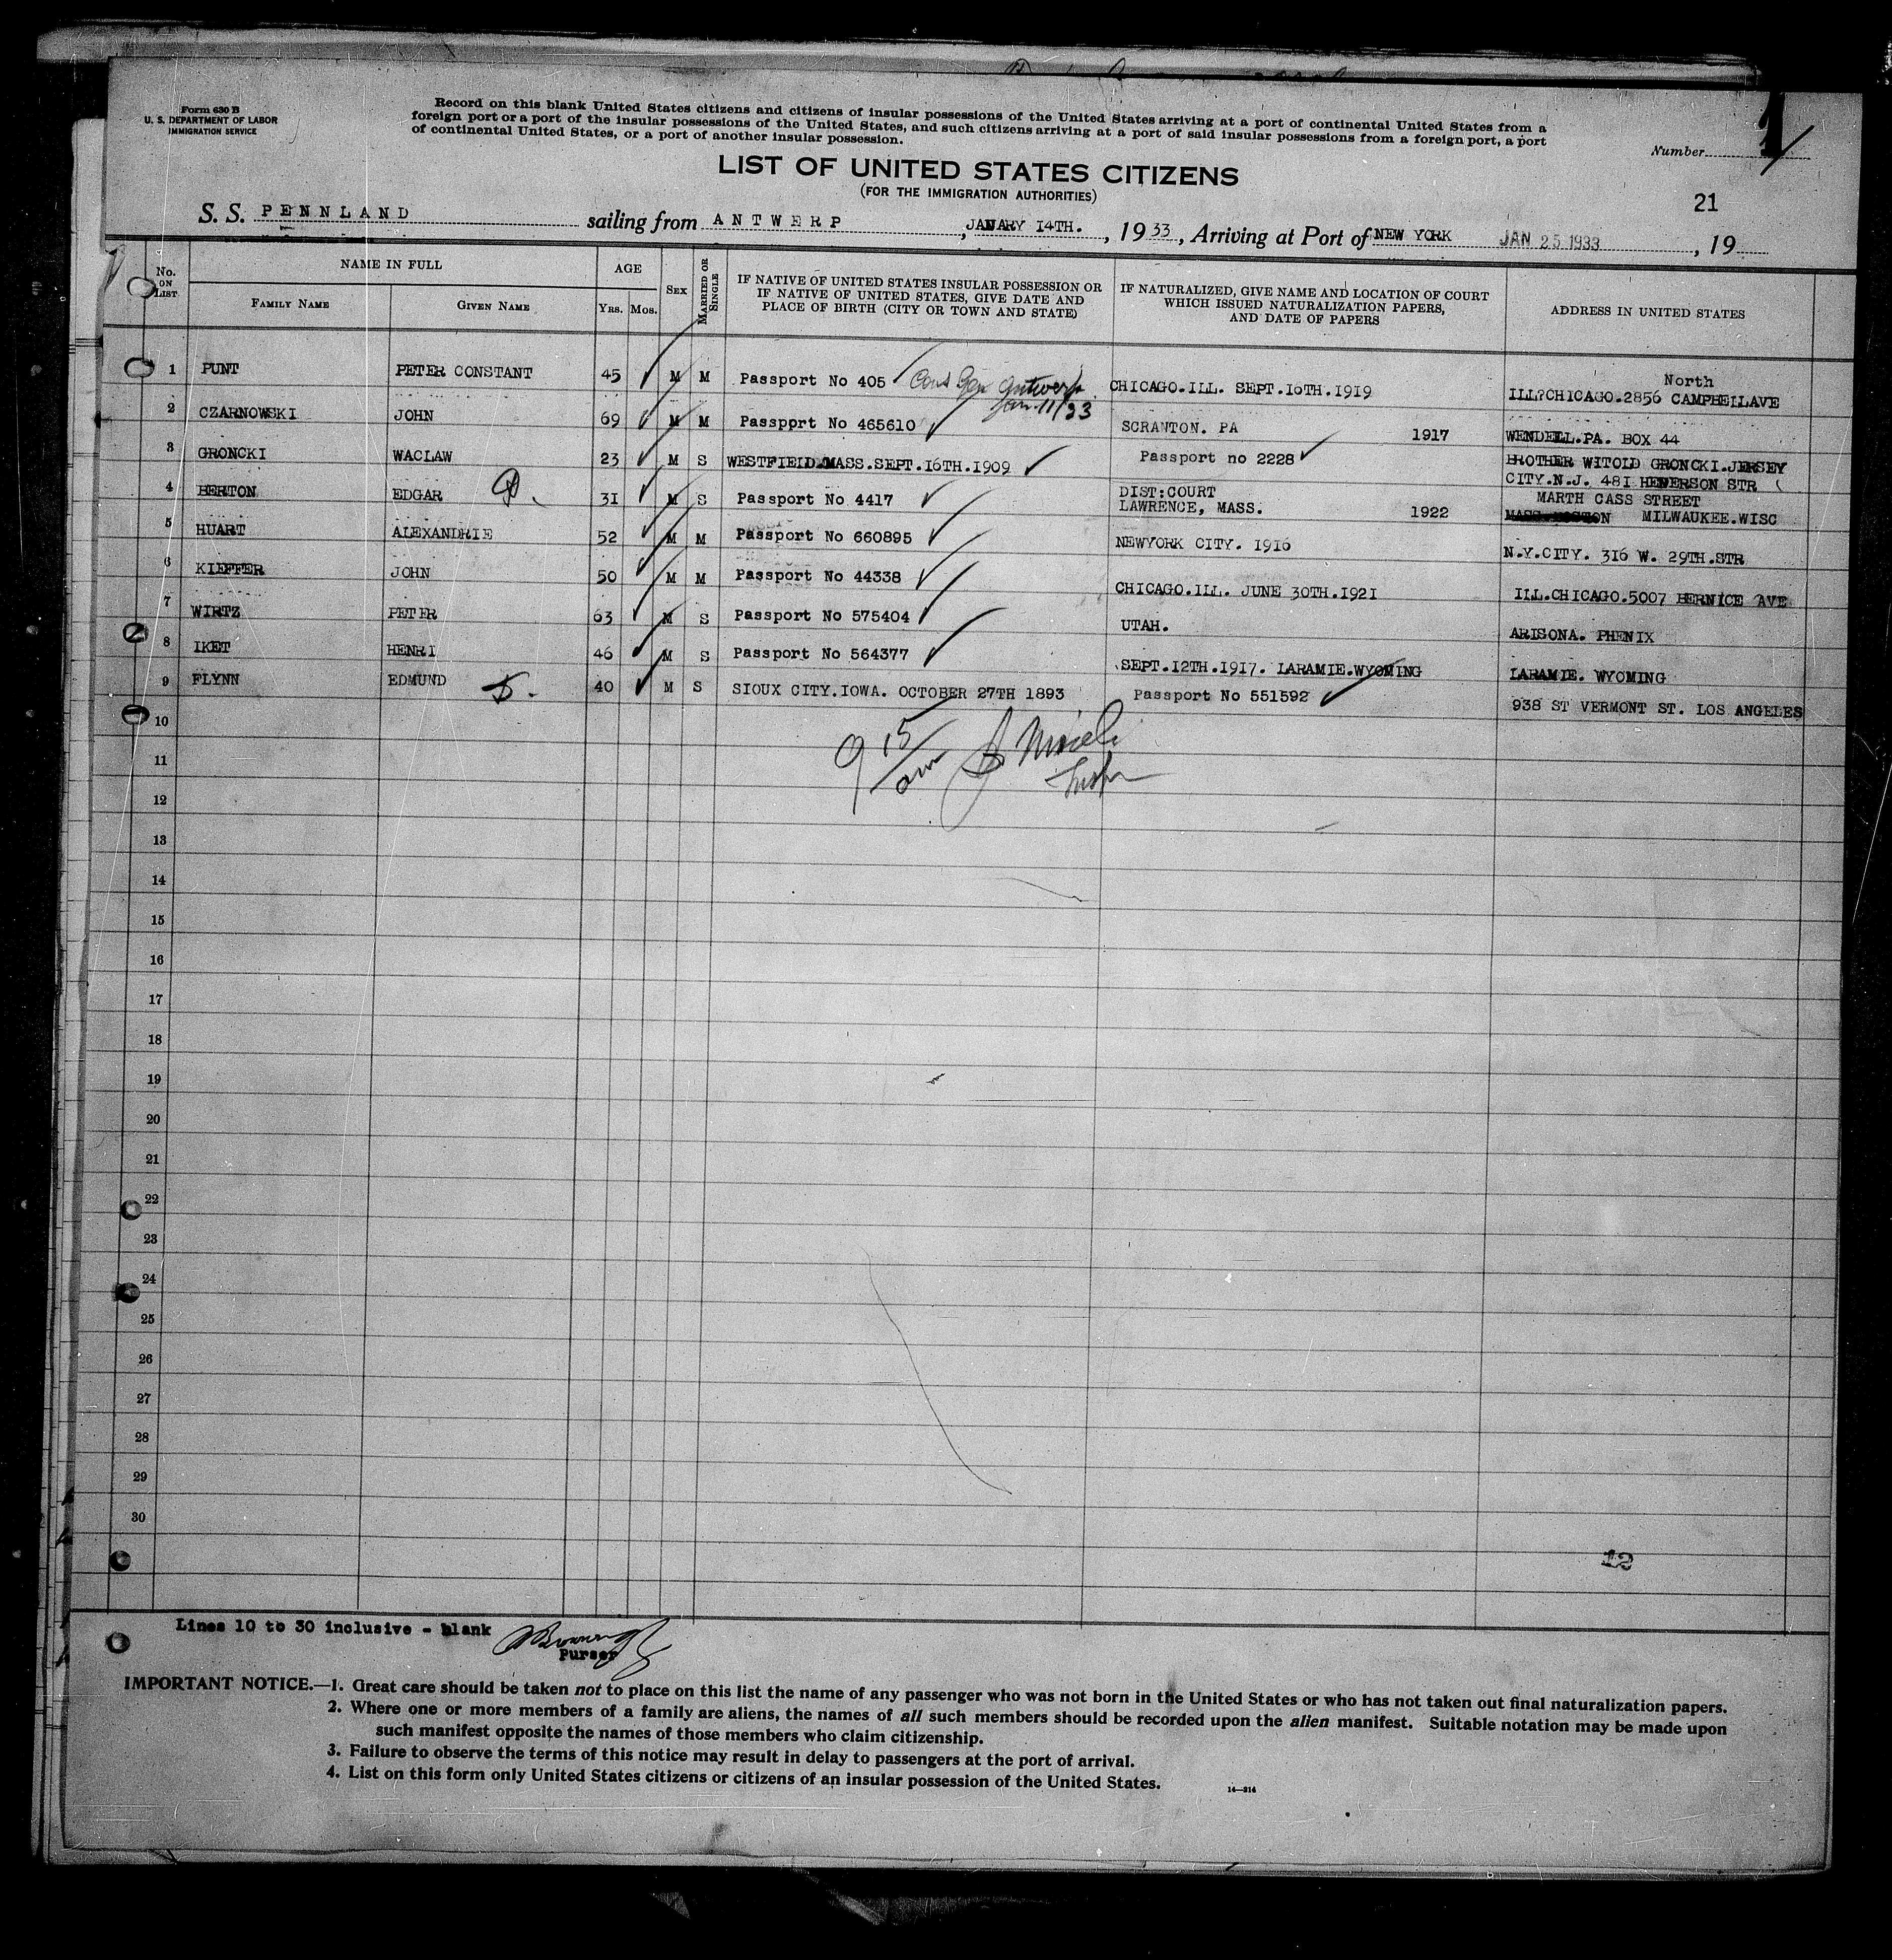 Form 630 B
U. S. DEPARTMENT OF LABOR
IMMIGRATION SERVICE
Record on this blank United States citizens and citizens of insular possessions of the United States arriving at a port of continental United States from a
foreign port or a port of the insular possessions of the United States, and such citizens arriving at a port of said insular possessions from a foreign port, a port
of continental United States, or a port of another insular possession.
Number
LIST OF UNITED STATES CITIZENS
(FOR THE IMMIGRATION AUTHORITIES)
21
S. S. PENNLAND sailing from ANTWERP, JANUARY 14TH., 1933, Arriving at Port of NEW YORK JAN 25 1933, 19
No. ON LIST
NAME IN FULL
FAMILY NAME
GIVEN NAME
AGE
YRS. MOS.
SEX
MARRIED OR SINGLE
IF NATIVE OF UNITED STATES INSULAR POSSESSION OR
IF NATIVE OF UNITED STATES, GIVE DATE AND
PLACE OF BIRTH (CITY OR TOWN AND STATE)
IF NATURALIZED, GIVE NAME AND LOCATION OF COURT
WHICH ISSUED NATURALIZATION PAPERS,
AND DATE OF PAPERS
ADDRESS IN UNITED STATES
1 PUNT PETER CONSTANT 45 M M Passport No 405 Cons Gen Antwerp Jan. 11/33 CHICAGO.ILL. SEPT.16TH.1919 North
ILL?CHICAGO.2856 CAMPBELLAVE
2 CZARNOWSKI JOHN 69 M M Passport No 465610 SCRANTON. PA 1917 WENDELL.PA. BOX 44
3 GRONCKI WACLAW 23 M S WESTFIELD.MASS.SEPT.16TH.1909 Passport no 2228 BROTHER WITOLD GRONCKI.JERSEY
CITY.N.J. 481 HENERSON STR
4 BERTON EDGAR 31 M S Passport No 4417 DIST:COURT
LAWRENCE, MASS. 1922 MARTH CASS STREET
MILWAUKEE.WISC
5 HUART ALEXANDRIE 52 M M Passport No 660895 NEWYORK CITY. 1916 N.Y.CITY. 316 W. 29TH.STR
6 KIEFFER JOHN 50 M M Passport No 44338 CHICAGO.ILL. JUNE 30TH.1921 ILL.CHICAGO.5007 BERNICE AVE
7 WIRTZ PETER 63 M S Passport No 575404 UTAH. ARISONA. PHENIX
8 IKET HENRI 46 M S Passport No 564377 SEPT.12TH.1917. LARAMIE.WYOMING LARAMIE. WYOMING
9 FLYNN EDMUND 40 M S SIOUX CITY.IOWA. OCTOBER 27TH 1893 Passport No 551592 938 ST VERMONT ST. LOS ANGELES
10
9 15/am
11
12
13
14
15
16
17
18
19
20
21
22
23
24
25
26
27
28
29
30
12
Lines 10 to 30 inclusive - blank
Purser
IMPORTANT NOTICE.—1. Great care should be taken not to place on this list the name of any passenger who was not born in the United States or who has not taken out final naturalization papers.
2. Where one or more members of a family are aliens, the names of all such members should be recorded upon the alien manifest. Suitable notation may be made upon
such manifest opposite the names of those members who claim citizenship.
3. Failure to observe the terms of this notice may result in delay to passengers at the port of arrival.
4. List on this form only United States citizens or citizens of an insular possession of the United States.
14—214